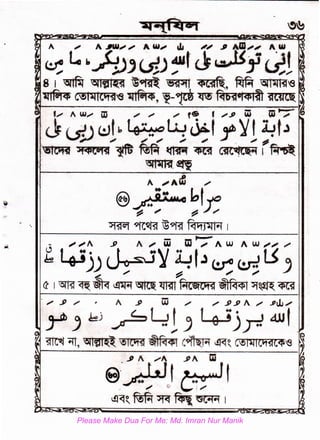 মনযিল ৩৬
إِنِّي تَوَكَّلْتُ عَلَى اللَّهِ رَبِّي وَرَبِّكُمْ ۚ مَا مِنْ
৪। আমি আল্লাহর উপরই ভরসা করেছি, যিনি আমারও
মালিক তোমাদেরও মালিক, ভূ-পৃষ্ঠে যত বিচরণকারী রয়েছে
دَابَّةٍ إِلَّا هُوَ آخِذٌ بِنَاصِيَتِهَا ۚ إِنَّ رَبِّي عَلَىٰ
তাদের সকলের ঝুটি তিনি ধারন করে রেখেছেন। নিশ্চই
আমার প্রভু
صِرَاطٍ مُسْتَقِيمٍ ﴿٥٦﴾
সরল পথের উপর বিদ্যমান।
وَكَأَيِّنْ مِنْ دَابَّةٍ لَا تَحْمِلُ رِزْقَهَا ۖ
৫। আর বহু জীব এমন আছে যারা নিজেদের জীবিকা সঞ্চয় করে
اللَّهُ يَرْزُقُهَا وَإِيَّاكُمْ ۚ وَهُوَ
রাখে না, আল্লাহই তাদের জীবিকা পৌঁছান এবং তোমাদেরকেও
السَّمِيعُ الْعَلِيمُ ﴿٦٠﴾
এবং তিনি সব কিছু শুনেন।
Please Make Dua For Me; Md. Imran Nur Manik